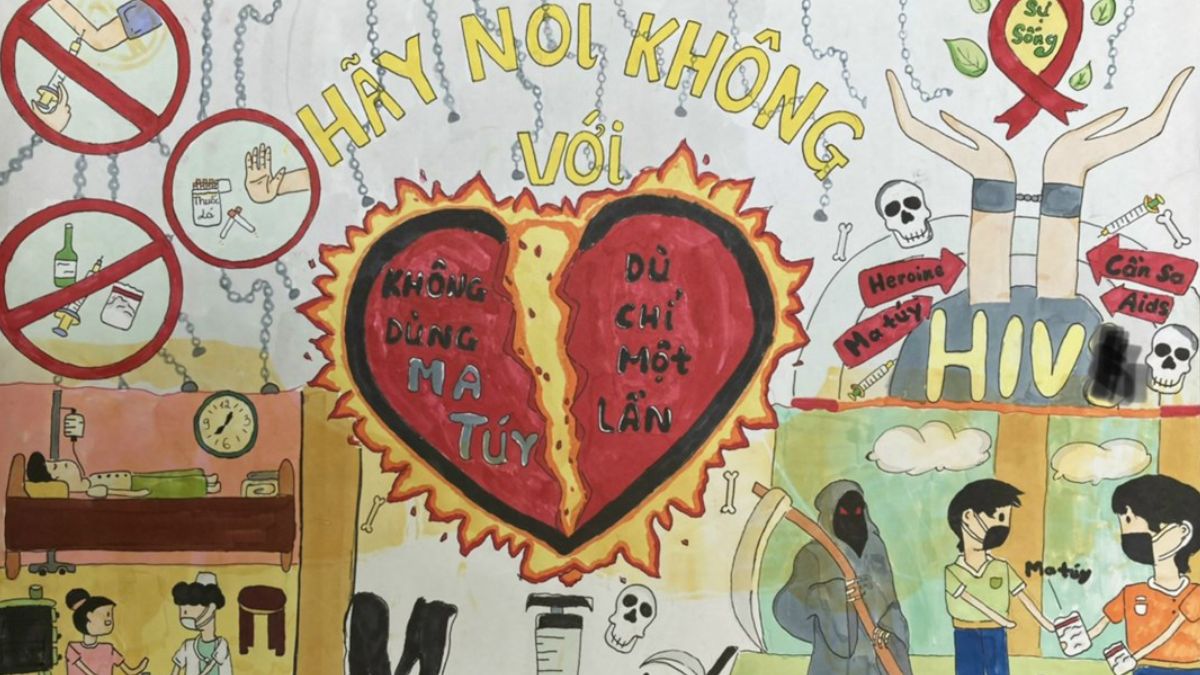 HÃY NÓI KHÔNG
VỚI
Sự
Sống
Thuốc
Lá
KHÔNG
DÙNG
MA
TÚY
DÙ
CHỈ
MỘT
LẦN
Heroine
Ma túy
Cần Sa
Aids
HIV
12
9
3
6
Ma túy